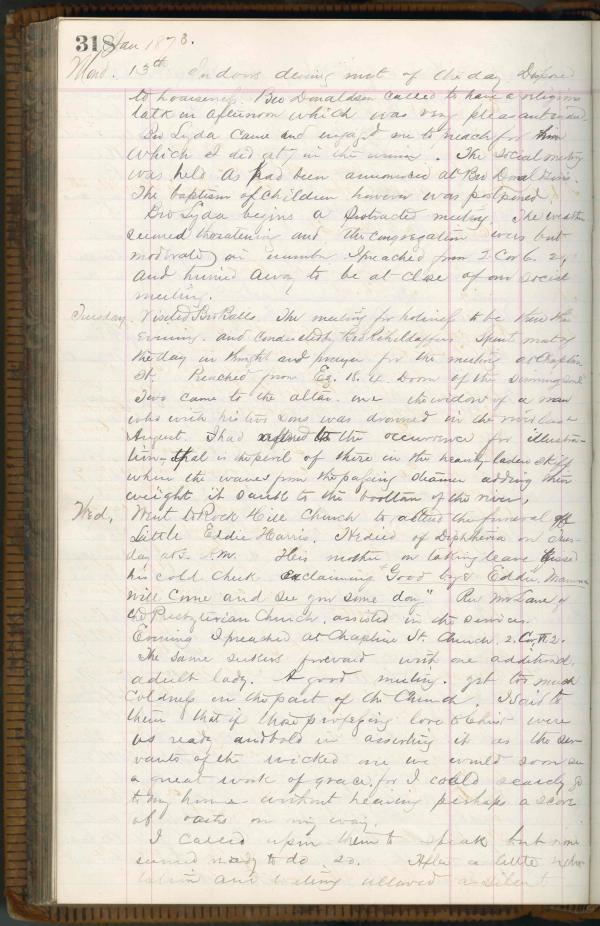 318 Jan 1873.
Mond. 13th Indoors during most of the day Disposed
to hoarseness. Bro Donaldson called to have a religious
talk in afternoon which was very pleasant indeed.
Bro Lyda came and engaged me to preach for him
which I did at in the . The social meeting
was held as had been announced at Bro Donaldsons.
The baptism of children however was postponed.
Bro Lyda begins a protracted meeting. The weather
seemed threatening and the congregation was but
moderate in number. I preached from 2 Cor 6. 2,
and hurried away to be at close of our social
meeting.
Tuesday. Visited Bro Balls. The meeting for holiness to be there this
evening. and conducted by Bro . Spent most of
the day in thought and prayer for the meeting at Chapline
St. Preached from Ez. 18. 4. Doom of the sinning soul
Two came to the altar. one the widow of a man
who with his two sons was drowned in the river last
August. I had referred to the occurrence for illustra-
tion, that is the peril of there in the heavy laden skiff
when the waves from the passing steamer adding their
weight it sank to the bottom of the river.
Wed. Went to Rock Hill Church to attend the funeral of
Little Eddie Harris. He died of Diphtheria on Tues-
day at 2 A.M. His mother on taking leave kissed
his cold cheek exclaiming "Good bye Eddie. Mamma
will come and see you some day" Rev Mr Lane of
the Presbyterian Church, assisted in the services.
Evening I preached at Chapline St. Church. 2. Cor. 2.
The same seekers forward with one additional.
adult lady. A good meeting. yet too much
coldness on the part of the Church. I said to
them that if those professing love to Christ were
as ready and bold in asserting it as the ser-
vants of the wicked one we would soon see
a great work of grace. for I could scarcely go
to my home without hearing perhaps a score
of oaths on my way.
I called upon them to speak but none
seemed ready to do so. After a little
and waiting allowed a silent